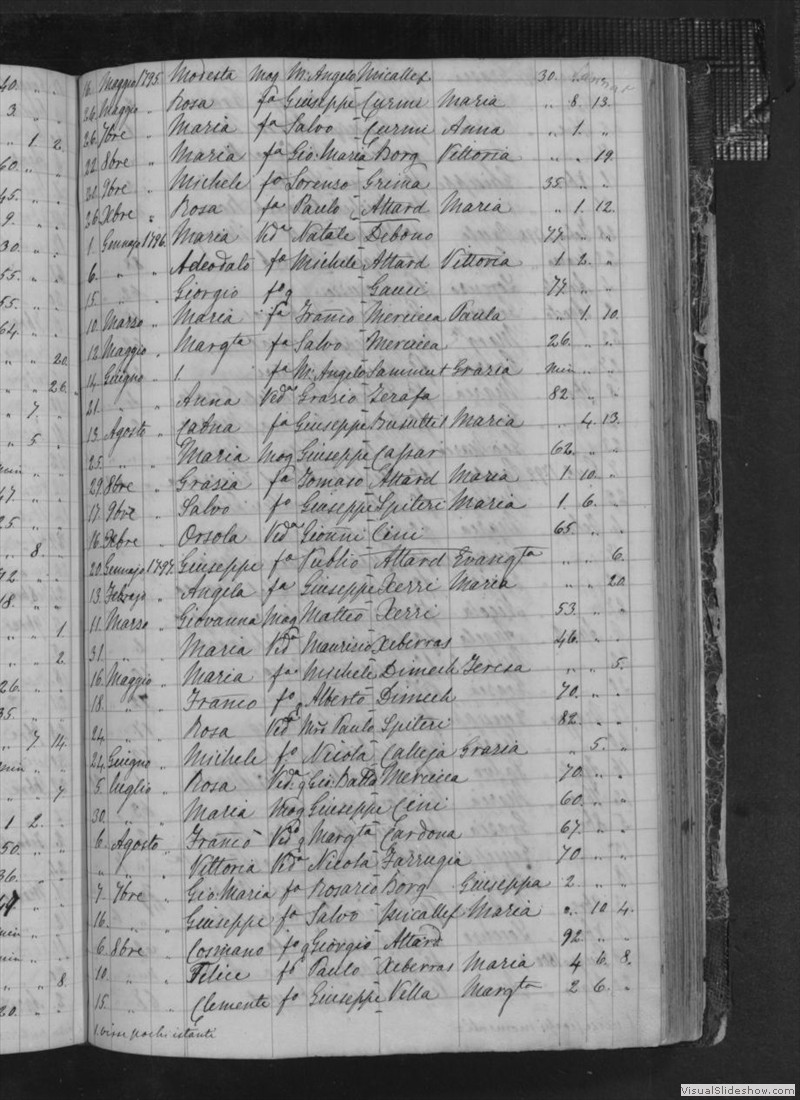 16. Maggio 1795. Modesta mog Mr Angelo Micallef 30. " "
26. Maggio " Rosa fa Giuseppe Curmi Maria " 8. 13.
26. 7bre " Maria fa Salvo Curmi Anna " 1. "
22. 8bre " Maria fa Gio: Maria Borg Vittoria " " 19.
9bre " Michele fo Lorenso Grima 35. " "
26. Xbre " Rosa fa Paulo Attard Maria " 1. 12.
1. Gennajo 1796. Maria Veda Natale Debono 77. " "
6. " " Adeodato fo Michele Attard Vittoria 1 2. "
15. " " Giorgio fo q Gauci 77. " "
10. Marso " Maria fa Franco Mercieca Paula " 1. 10.
12. Maggio " Margta fa Salvo Mercieca 26. " "
14. Giugno " 1. fa Mr Angelo Sammut Grazia min " "
21. " " Anna Veda Grasio Zerafa 82. " "
13. Agosto " fa Giuseppe Busuttil Maria " 4. 13.
25. " " Maria mog Giuseppe Cassar 62. " "
29. 8bre " Grasia fa Tomaso Attard Maria 1 10. "
17. 9bre " Salvo fo Giuseppe Spiteri Maria 1 6. "
16. Xbre " Orsola Veda Gionni Cini 65. " "
20. Gennajo 1797. Giuseppe fo Publio Attard Evangta " " 6.
13. Febrajo " Angela fa Giuseppe Xerri Maria " " 20.
11. Marso " Giovanna mog Matteo Xerri 53. " "
31. " " Maria Veda Maurisio Xeberras 46. " "
16. Maggio " Maria fa Michele Dimech Teresa " " 5.
18. " " Franco fo q Alberto Dimech 70. " "
24. " " Rosa Veda Mro Paulo Spiteri 82. " "
24. Giugno " Michele fo Nicola Calleja Grazia " 5. "
5. Luglio " Rosa Veda q Gio: Batta Mercieca 70. " "
30. " " Maria mog Giuseppe Cini 60. " "
6. Agosto " Franco Vedo q Margta Cardona 67. " "
" " " Vittoria Veda Nicola Farrugia 70. " "
7. 7bre " Gio: Maria fo Rosario Borg Giuseppa 2. " "
16. " " Giuseppe fo Salvo Micallef Maria " 10. 4.
6. 8bre " Cosmano fo q Giorgio Attard 92. " "
10. " " Felice fo Paulo Xeberras Maria 4 6. 8.
15. " " Clemente fo Giuseppe Vella Margta 2 6. "
1. visse pochi istanti
VisualSlideshow.com